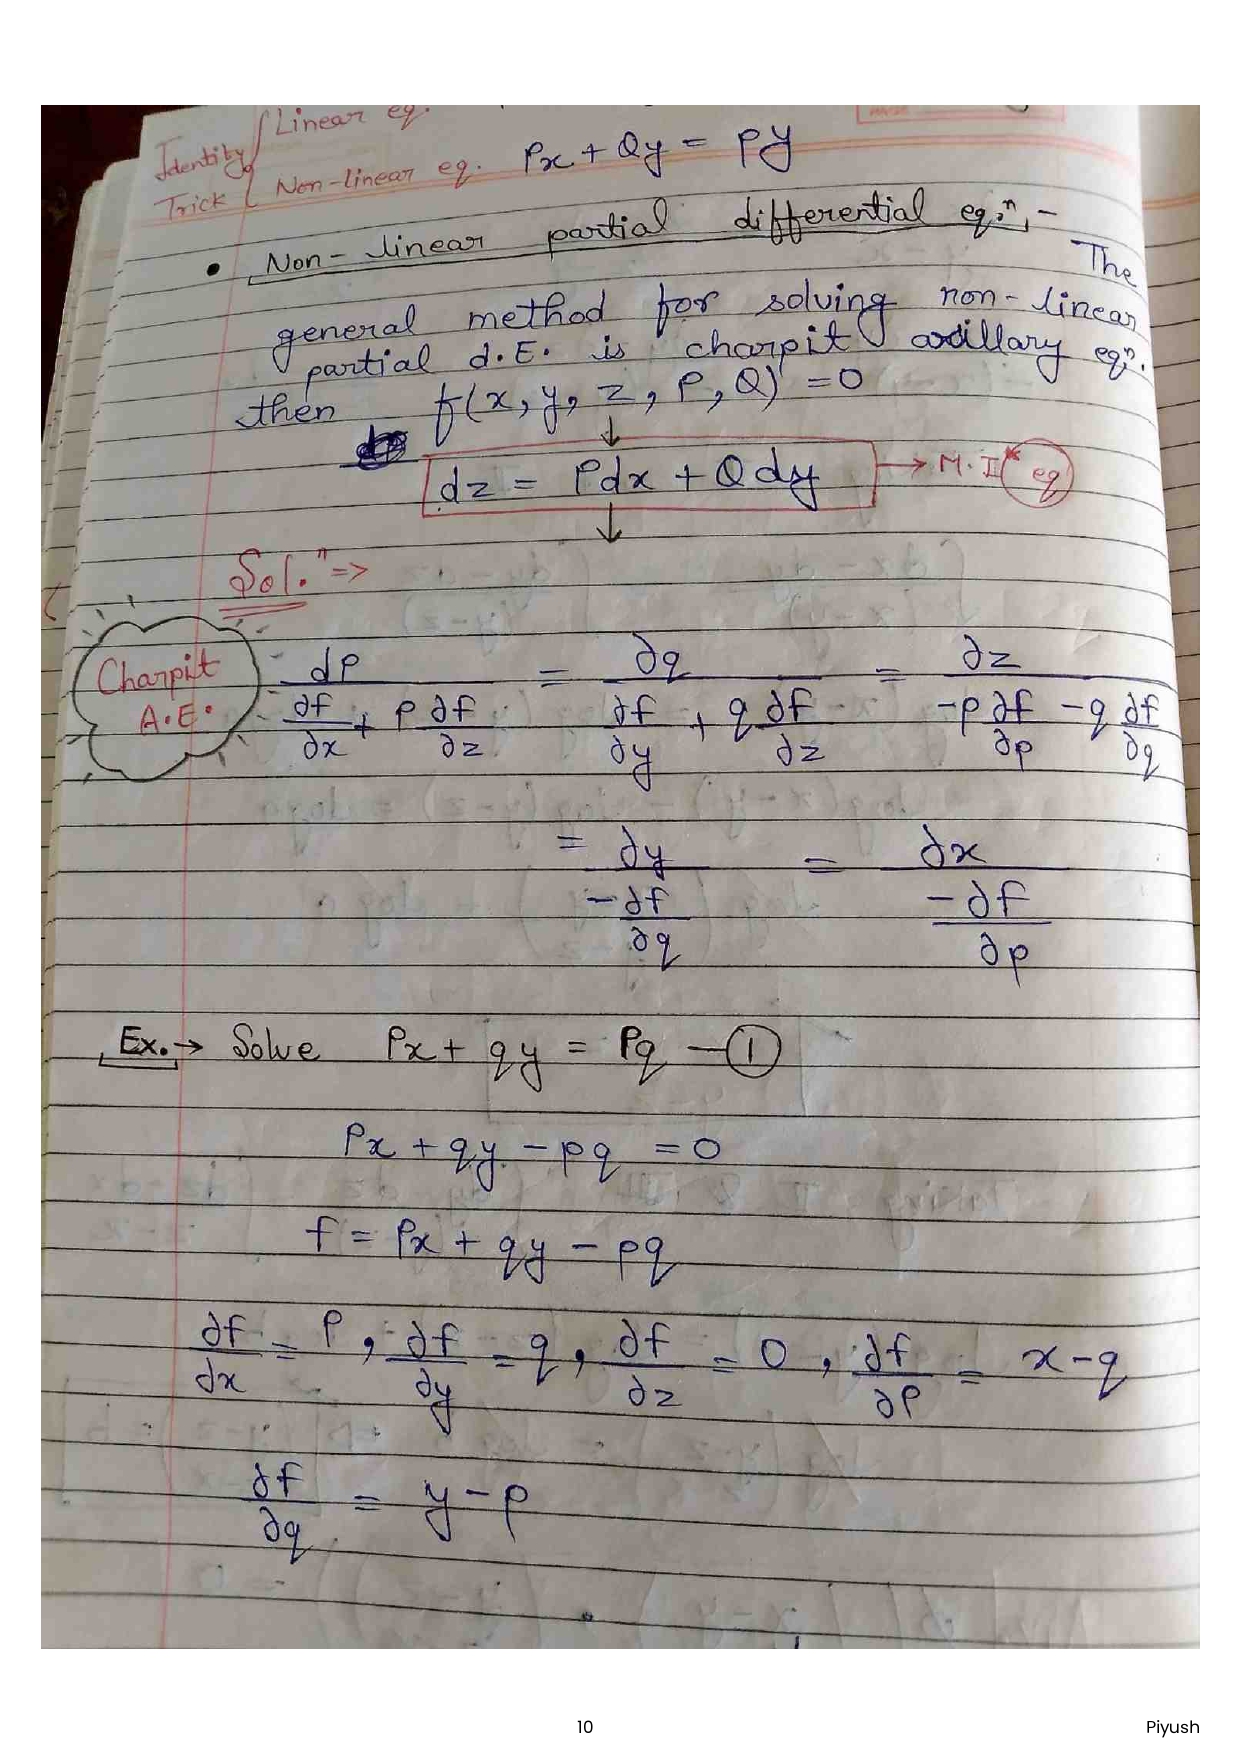 Linear eq.
Identity
Trick
Non-linear eq. Px + Qy = Py
• Non-linear partial differential eq.ⁿ, -
The
general method for solving non-linear
partial d.E. is charpit axillary eqⁿ.
then f(x, y, z, P, Q) = 0
↓
dz = Pdx + Qdy → M.I* eq
↓
Sol.ⁿ =>
Charpit
A.E.
dP/(∂f/∂x + P ∂f/∂z) = ∂q/(∂f/∂y + q ∂f/∂z) = ∂z/(-p ∂f/∂p - q ∂f/∂q)
= ∂y/(-∂f/∂q) = ∂x/(-∂f/∂p)
Ex. → Solve Px + qy = Pq — ①
Px + qy - pq = 0
f = Px + qy - pq
∂f/∂x = P, ∂f/∂y = q, ∂f/∂z = 0, ∂f/∂P = x - q
∂f/∂q = y - p
10
Piyush